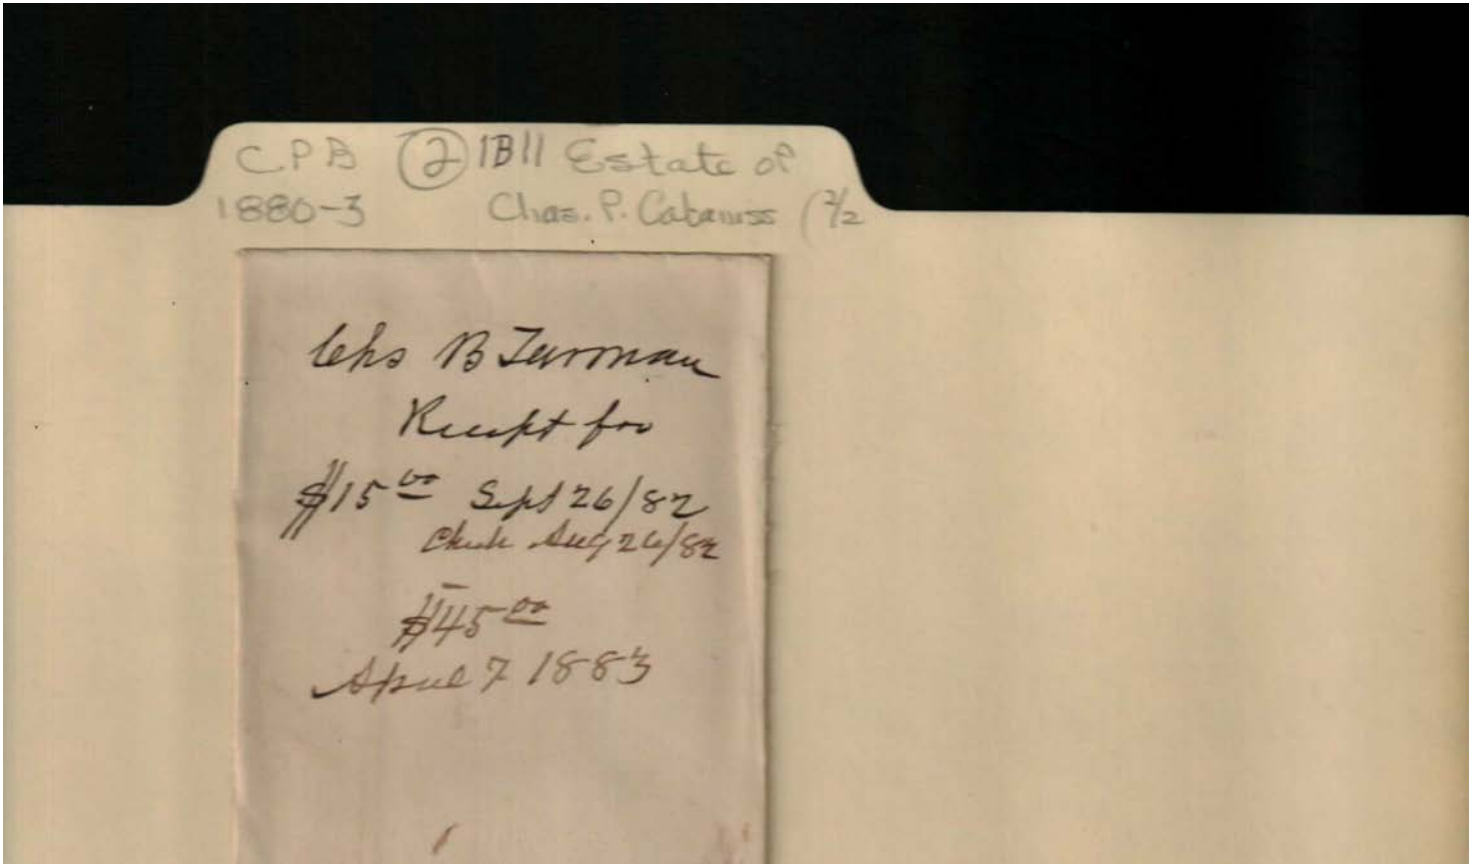 CPB ② 1B11 Estate of
1880-3 Chas. P. Cabaniss (2/2
Chs B Turman
Receipt for
$15.00 Sept 26/82
Check Aug 26/82
$45.00
April 7 1883